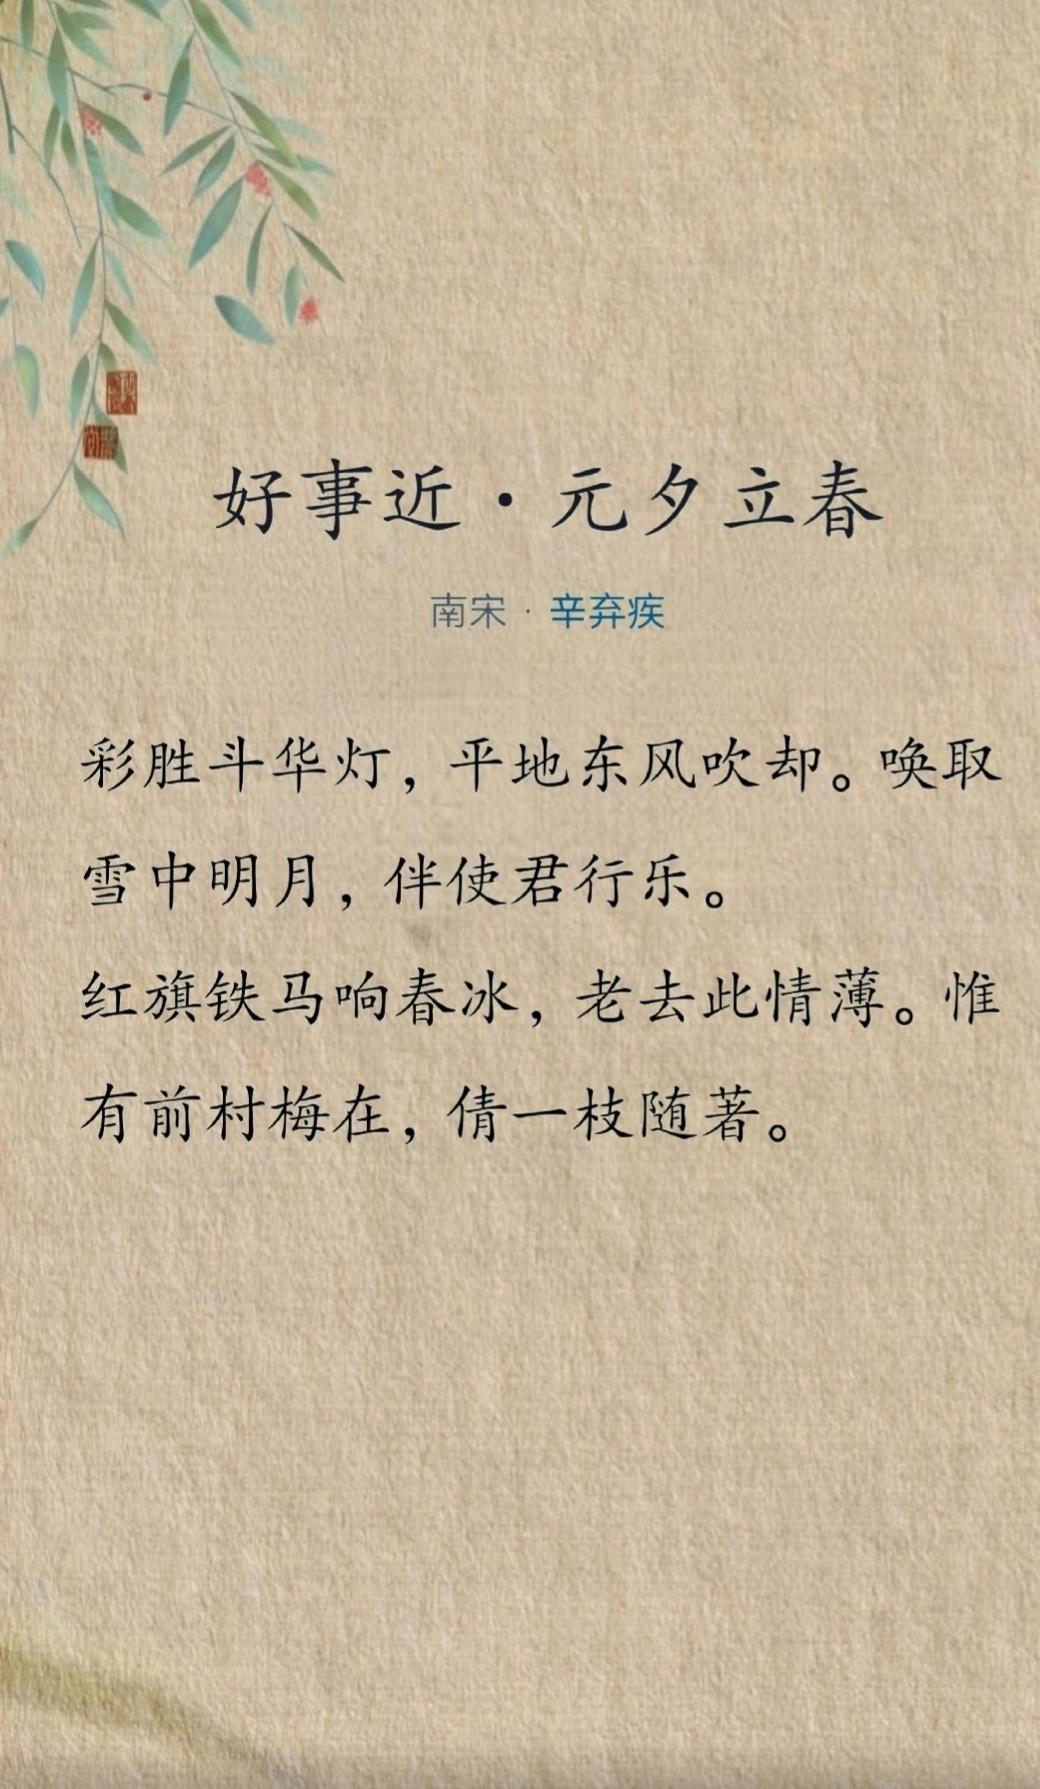 好事近·元夕立春
南宋·辛弃疾
彩胜斗华灯，平地东风吹却。唤取
雪中明月，伴使君行乐。
红旗铁马响春冰，老去此情薄。惟
有前村梅在，倩一枝随著。